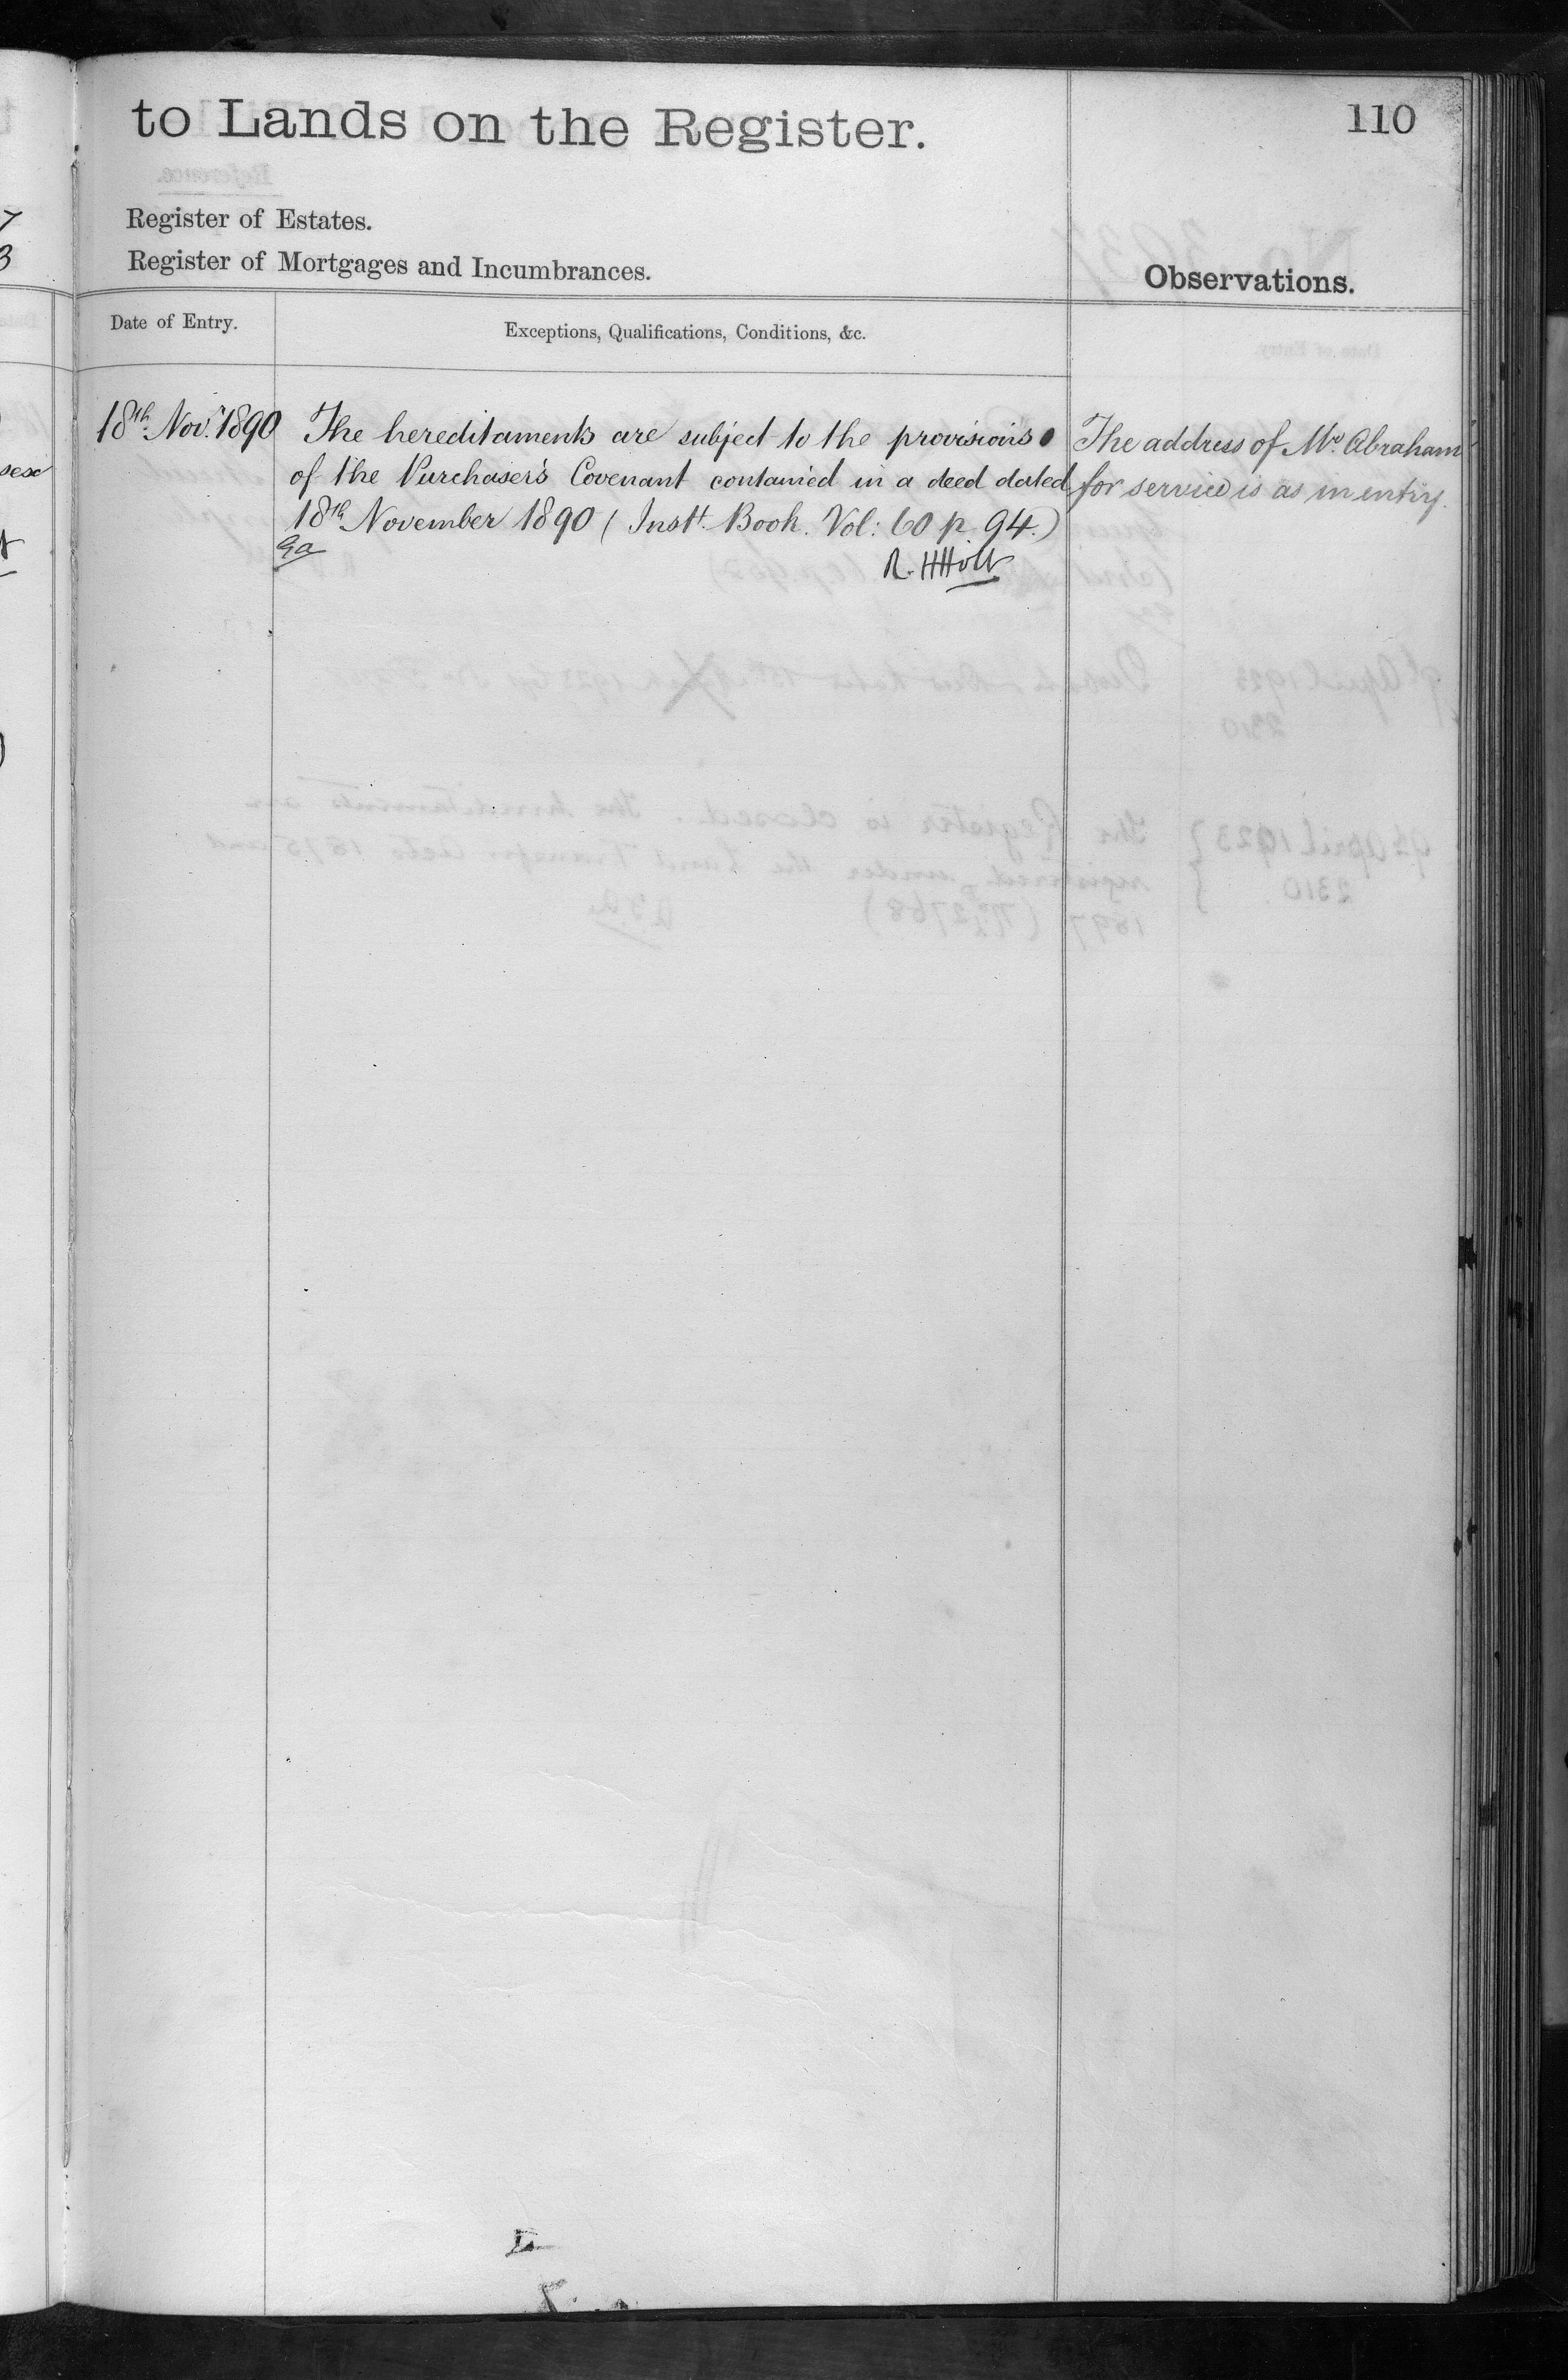 to Lands on the Register.
110
Register of Estates.
Register of Mortgages and Incumbrances.
Observations.
Date of Entry.
Exceptions, Qualifications, Conditions, &c.
18th Nov. 1890
The hereditaments are subject to the provisions
of the Purchaser's Covenant contained in a deed dated
18th November 1890 (Instt. Book. Vol: 60 p. 94.)
R. H Holt
The address of Mr. Abraham
for service is as in entry.